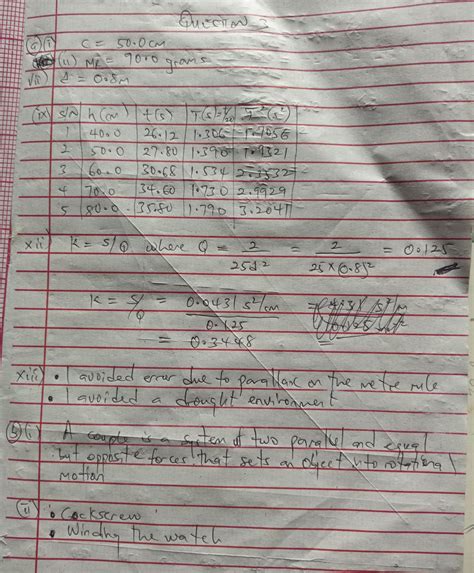 Question 3
(a)(i) C = 50.0cm
(ii) = 90.0 grams
vii) d = 0.8m
(ix) S/N h(cm) t(s) T(s)=t/20 T²(s²)
1 40.0 26.12 1.306 1.7056
2 50.0 27.80 1.390 1.9321
3 60.0 30.68 1.534 2.3532
4 70.0 34.60 1.730 2.9929
5 80.0 35.80 1.790 3.2041
xii) K = S/Q where Q = 2/25d² = 2/25×(0.8)² = 0.125
K = S/Q = 0.0431 s²/cm / 0.125
= 0.3448
xiii) • I avoided error due to parallax on the metre rule
• I avoided a drought environment
(b)(i) A couple is a system of two parallel and equal
but opposite forces that sets an object into rotational
motion
(ii) • Cockscrew
• Winding the watch